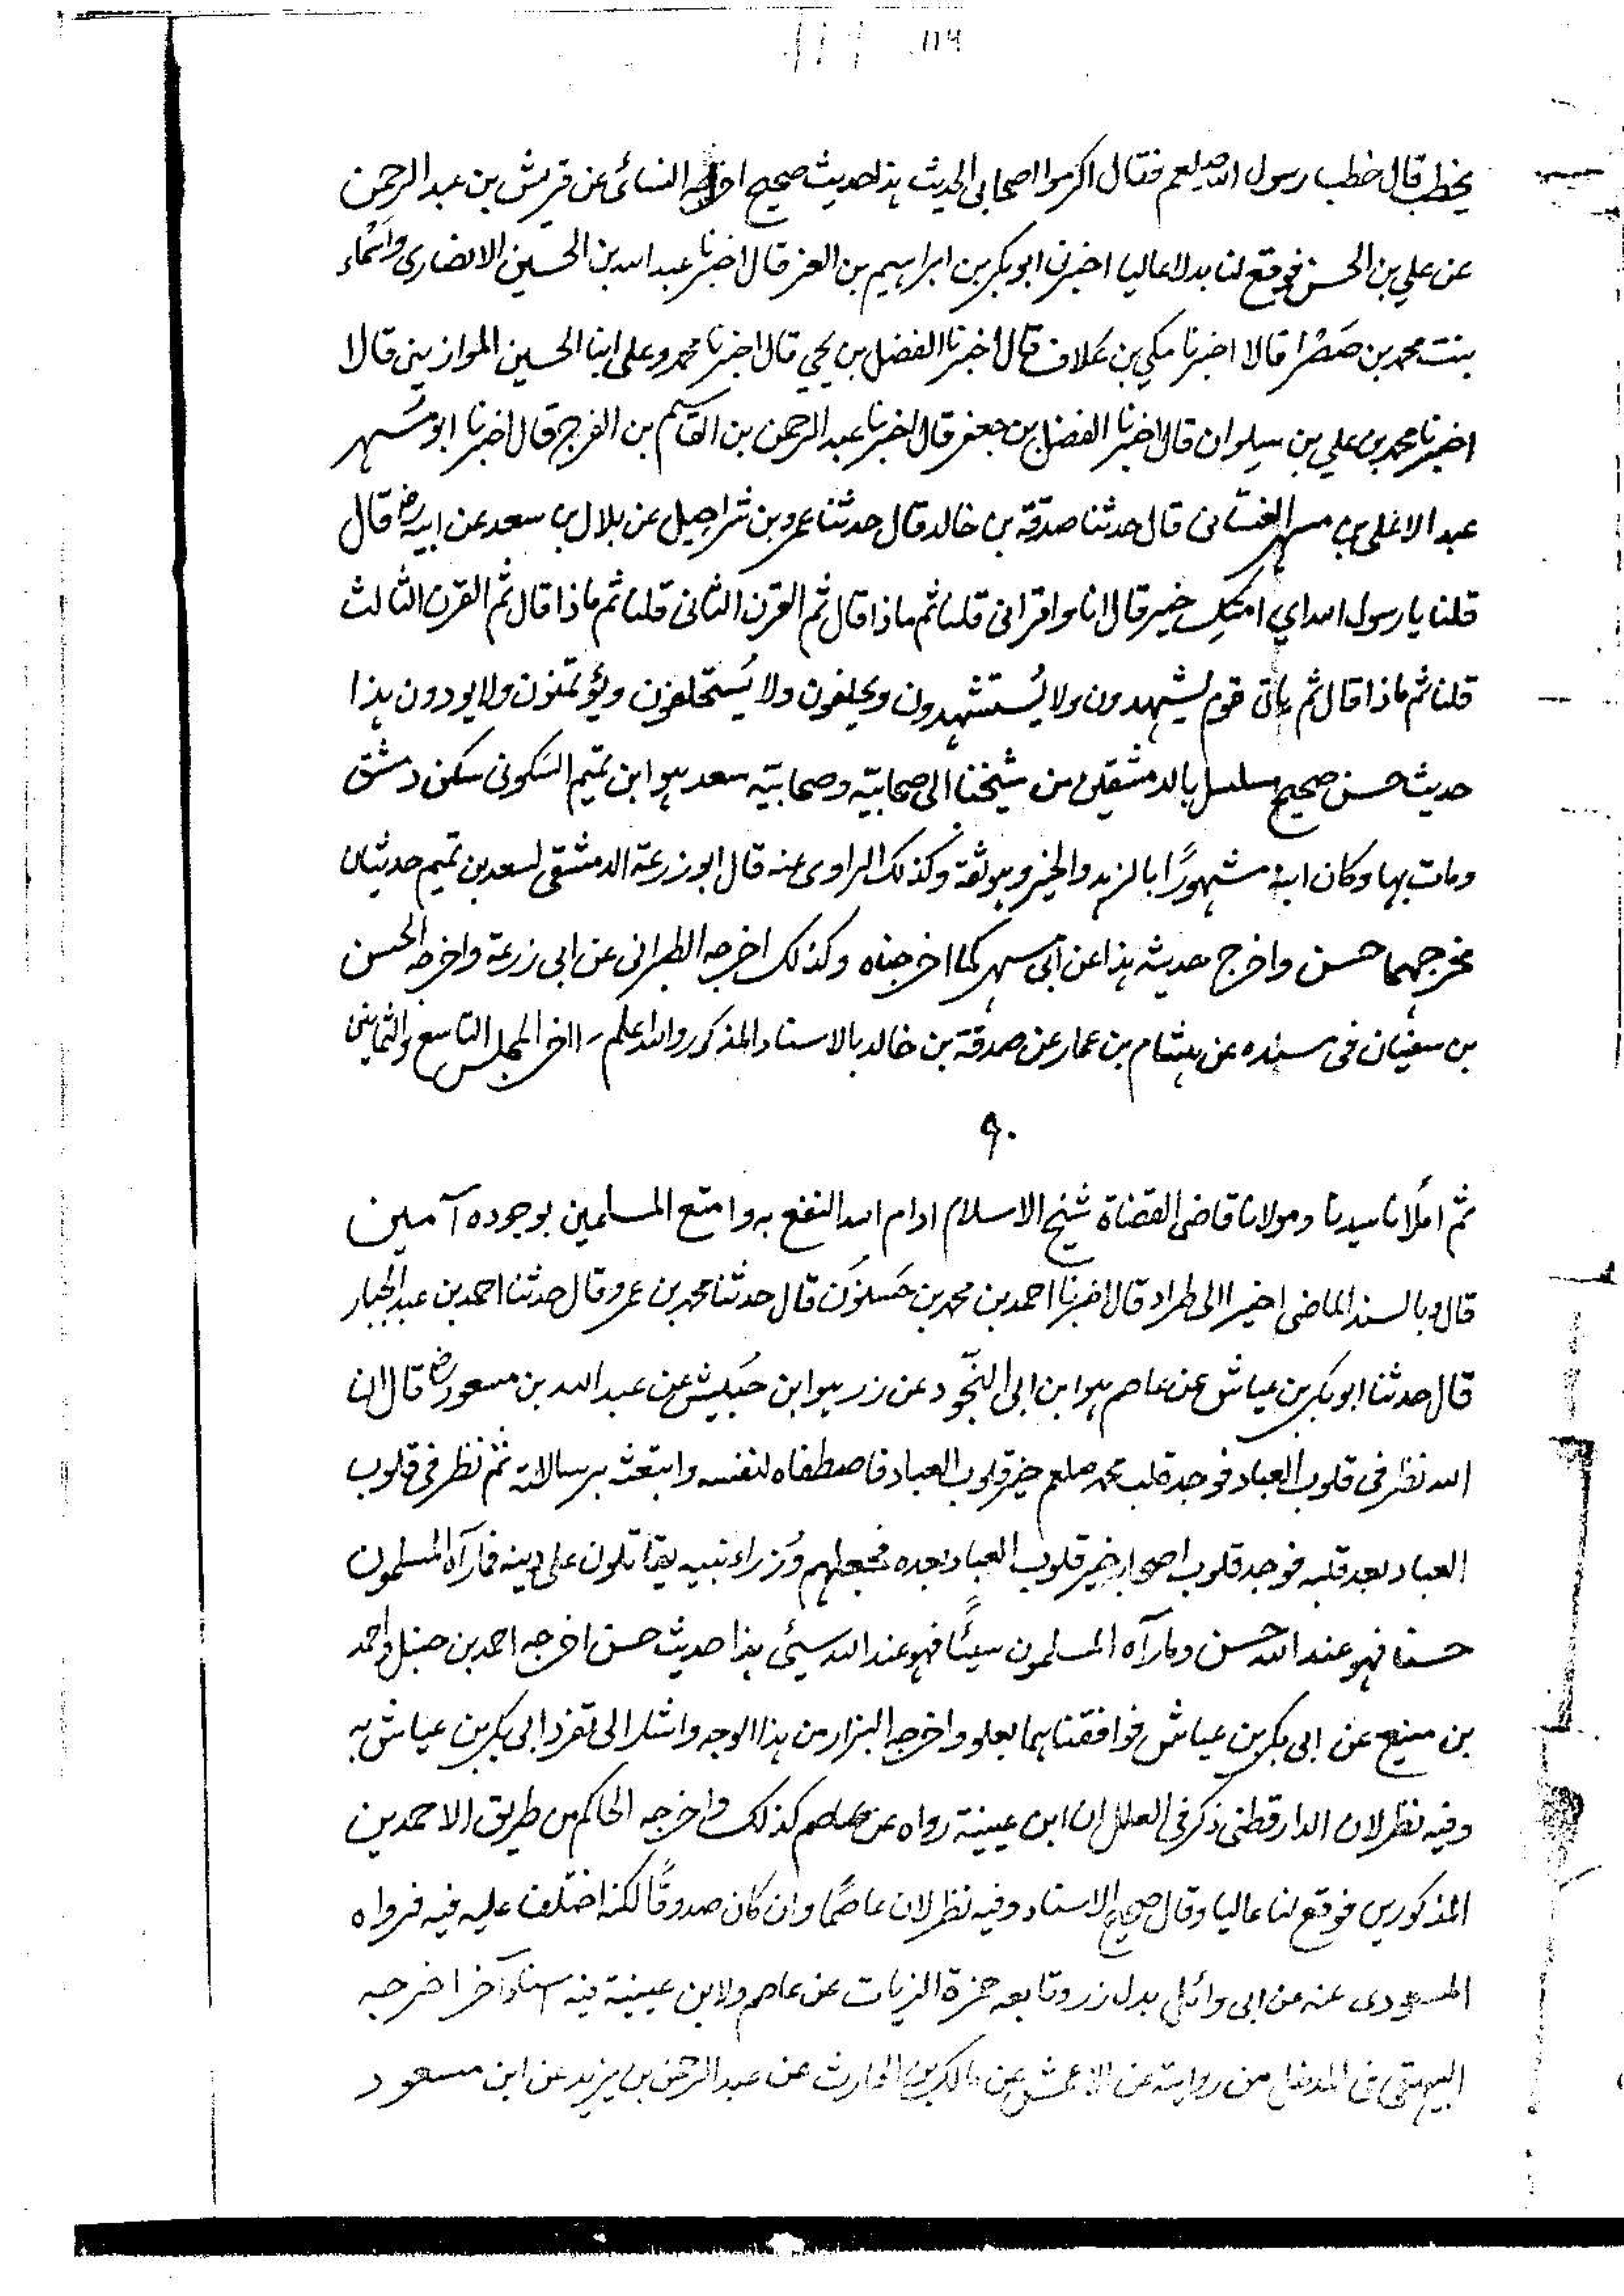 ١١٩
يخطب قال خطب رسول الله صلعم فقال اكرموا اصحابى الحديث هذا حديث صحيح اخرجه النسائى عن قريش بن عبد الرحمن
عن علي بن الحسن فوقع لنا بدلا عاليا اخبرنا ابو بكر بن ابراهيم بن العز قال اخبرنا عبد الله بن الحسين الانصارى واسماء
بنت محمد بن صَصْرا قالا اخبرنا مكي بن علان قال اخبرنا الفضل بن يحيى قال اخبرنا محمد وعلى ابنا الحسين الموازينى قالا
اخبرنا محمد بن علي بن سلوان قال اخبرنا الفضل بن جعفر قال اخبرنا عبد الرحمن بن القاسم بن الفرج قال اخبرنا ابو مسهر
عبد الاعلى بن مسهر الغسّانى قال حدثنا صدقة بن خالد قال حدثنا عمرو بن شراحيل عن بلال بن سعد عن ابيه رض قال
قلنا يا رسول الله اي امتك خير قال انا واقرانى قلنا ثم ماذا قال ثم القرن الثانى قلنا ثم ماذا قال ثم القرن الثالث
قلنا ثم ماذا قال ثم يأتى قوم يشهدون ولا يُستشهدون ويحلفون ولا يُستحلفون ويؤتمنون ولا يودون هذا
حديث حسن صحيح مسلسل بالدمشقيين من شيخنا الى صحابيّه وصحابيّه سعد هو ابن تميم السكونى سكن دمشق
ومات بها وكان ابنه مشهورًا بالزهد والخير وهو ثقة وكذلك الراوى عنه قال ابو زرعة الدمشقى لسعد بن تميم حديثان
مخرجهما حسن واخرج حديثه هذا عن أبى مسهر كما اخرجناه وكذلك اخرجه الطبرانى عن ابى زرعة واخرجه الحسن
بن سفيان فى مسنده عن هشام بن عمار عن صدقة بن خالد بالاسناد المذكور والله اعلم اخر المجلس التاسع والثمانين
٩٠
ثم املانا سيدنا ومولانا قاضى القضاة شيخ الاسلام ادام الله النفع به وامتع المسلمين بوجوده آمين
قال وبالسند الماضى اخيرا الى طراد قال اخبرنا احمد بن محمد بن حَسنُون قال حدثنا محمد بن عمرو قال حدثنا احمد بن عبد الجبار
قال حدثنا ابو بكر بن عياش عن عاصم هو ابن ابى النّجود عن زر هو ابن حُبيش عن عبد الله بن مسعود رض قال ان
الله نظر فى قلوب العباد فوجد قلب محمد صلعم خير قلوب العباد فاصطفاه لنفسه وابتعثه برسالاته ثم نظر فى قلوب
العباد بعد قلبه فوجد قلوب اصحابه خير قلوب العباد بعده فجعلهم وُزراء نبيه يقاتلون على دينه فما رآه المسلمون
حسنا فهو عند الله حسن وما رآه المسلمون سيئًا فهو عند الله سيئ هذا حديث حسن اخرجه احمد بن حنبل واحمد
بن منيع عن ابى بكر بن عياش فوافقناهما بعلو واخرجه البزار من هذا الوجه واشار الى تفرد ابى بكر بن عياش به
وفيه نظر لان الدارقطنى ذكر فى العلل ان ابن عيينة رواه عن عاصم كذلك واخرجه الحاكم من طريق الاحمدين
المذكورين فوقع لنا عاليا وقال صحيح الاسناد وفيه نظر لان عاصمًا وان كان صدوقًا لكنه اختلف عليه فيه فرواه
المسعودى عنه عن ابى وائل بدل زر وتابعه حمزة الزيات عن عاصم ولابن عيينة فيه اسناد آخر اخرجه
البيهقى فى المدخل من روايته عن الاعمش عن مالك بن الحارث عن عبد الرحمن بن يزيد عن ابن مسعود